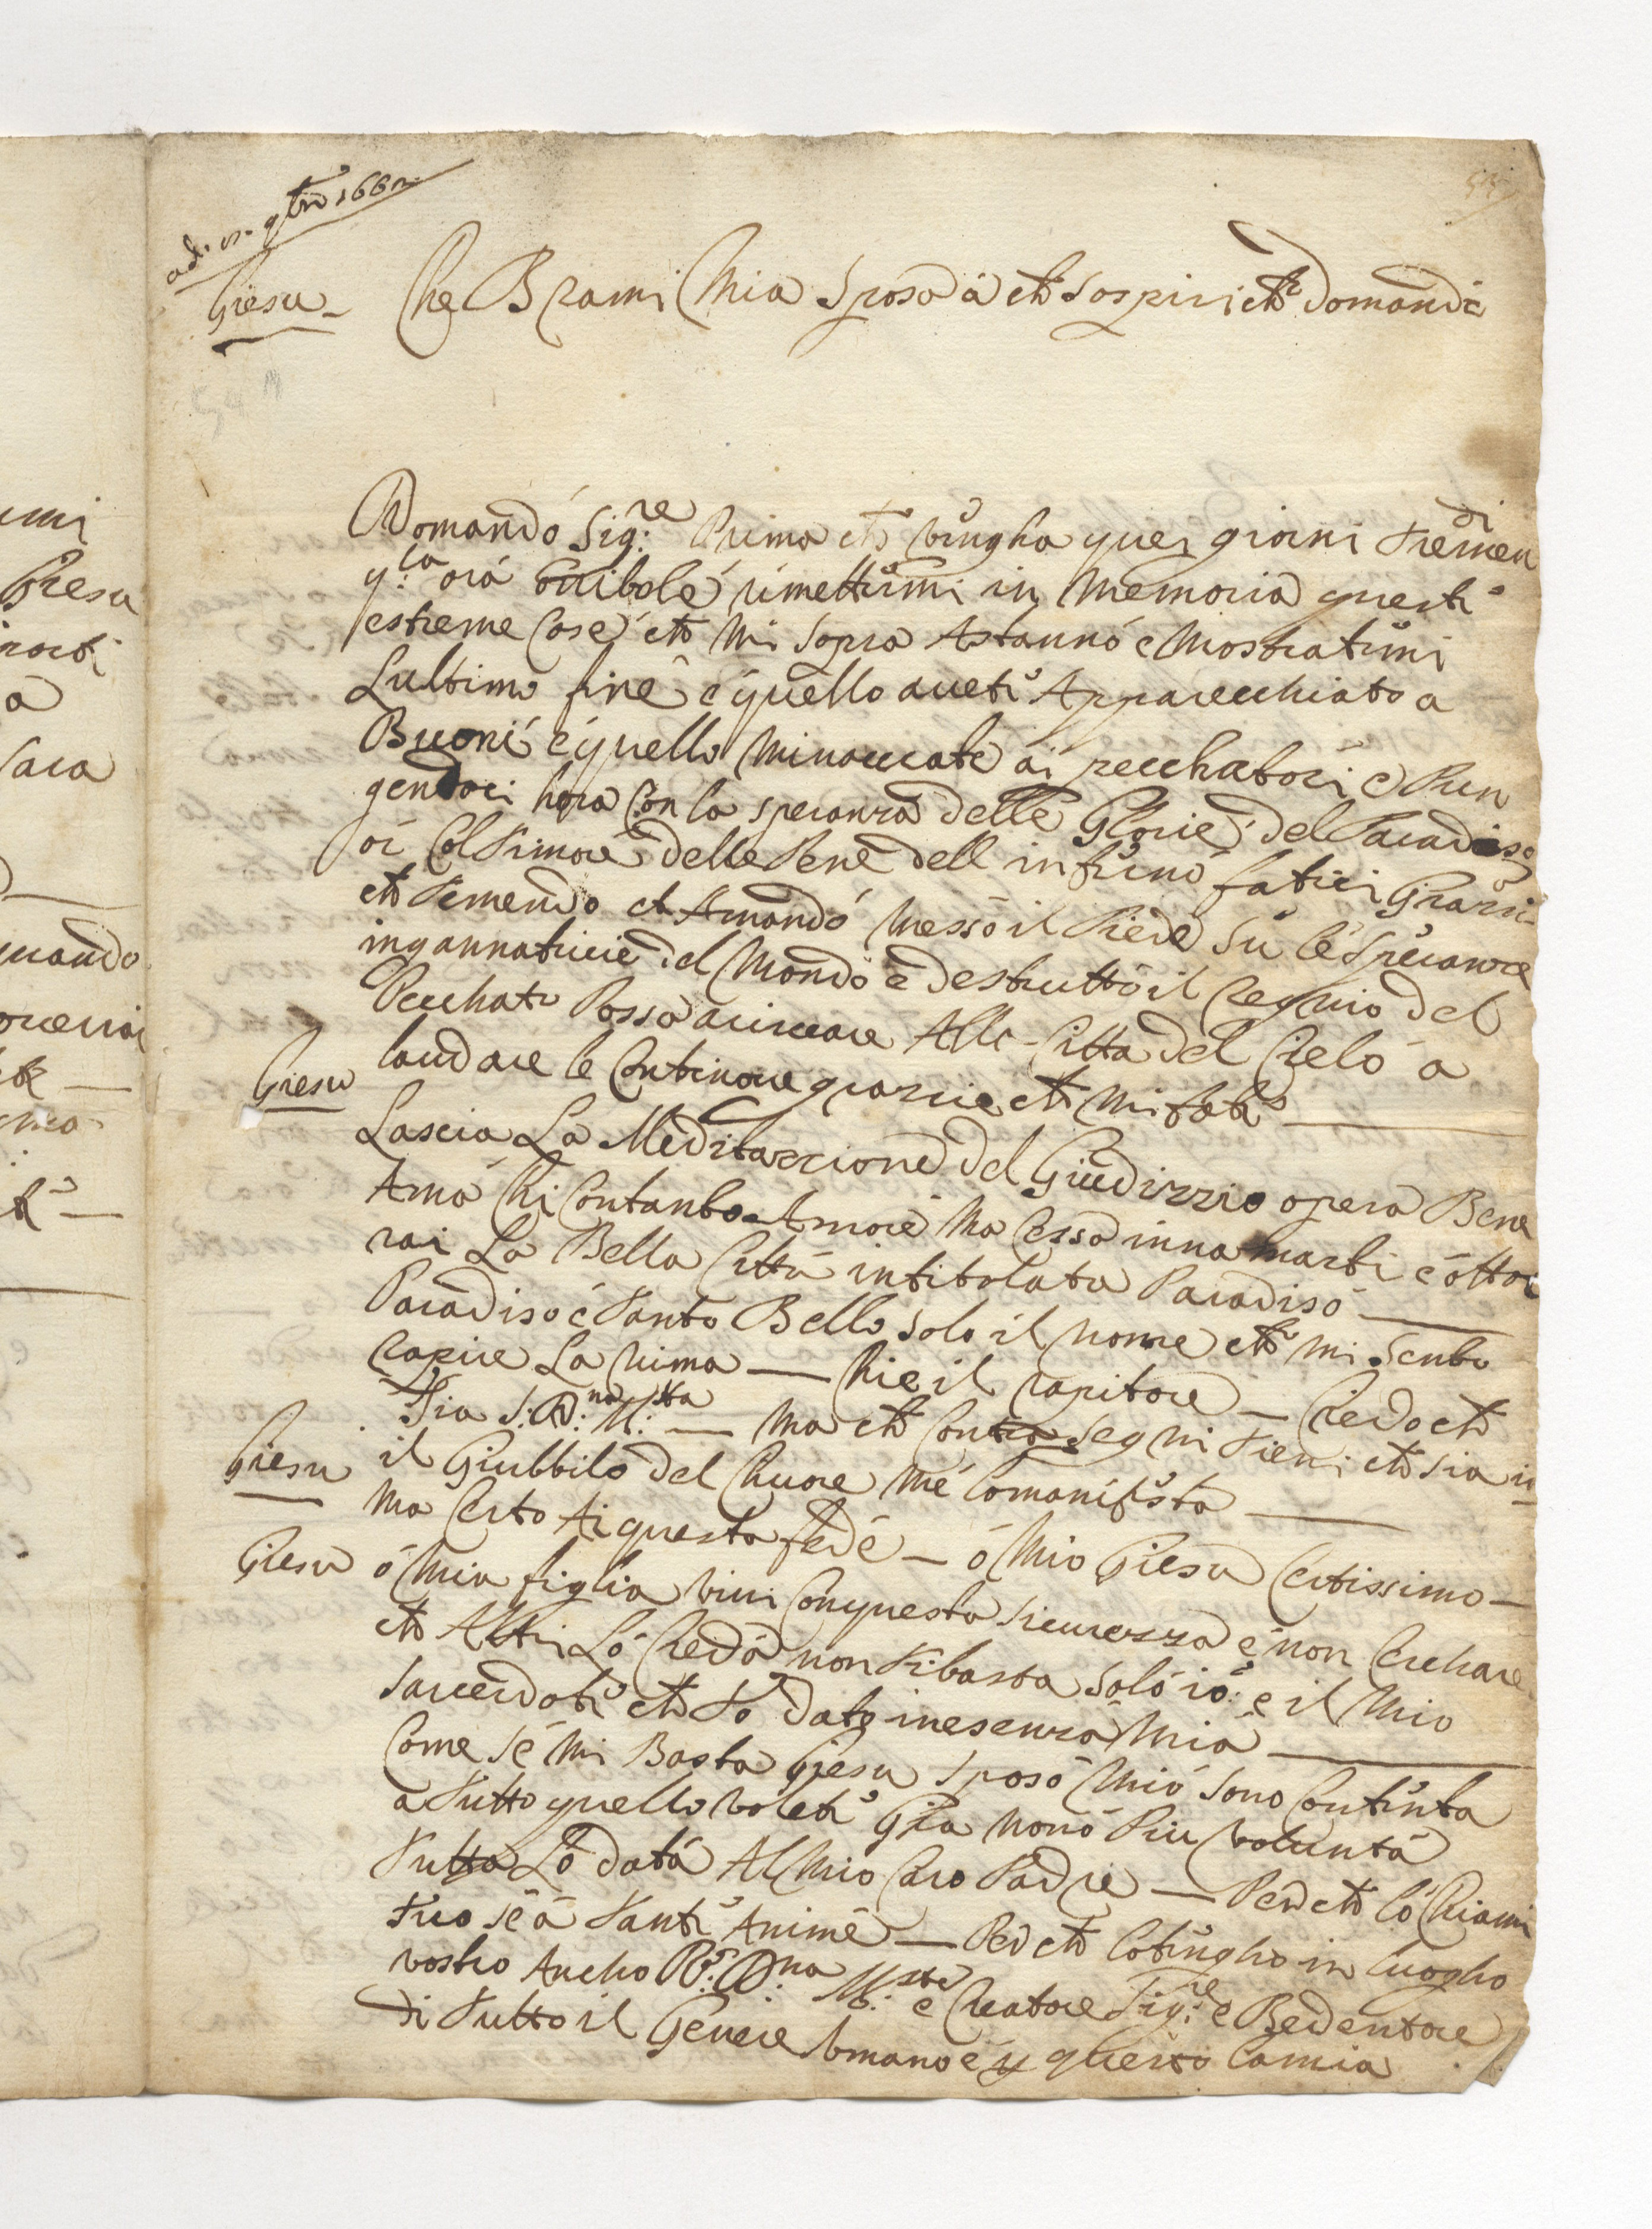 adi 11. 9bre 1662
Giesu Che Brami Mia Sposa a che Sospiri che domandi
Domando Sig:re Prima che vengha quei giorni Tremen di
q:la ora terribole rimettermi in Memoria questi
estreme Cose che Mi Sopra Astanno e Mostratemi
Lultimo fine e quello avete Apparecchiato a
Buoni e quello Minacciate ai pecchatori e Pun
gendoci hora Con la speranza delle Glorie del Paradiso
or Col Timore delle Pene dell inferno fatici Grazi
che Temendo et Amando Messo il Piede Su le Speranze
ingannatricie del Mondo e destrutto il regnio del
Pecchato Possa arivare Alla Citta del Cielo a
laudare le Continoue grazzie che Mi fate
Giesu
Lascia La Meditazzione del Giudizzio opera Bene
Ama Chi Contanto Amore Ma Cessa innamarti e otter
rai La Bella Citta intitolata Paradiso
Paradiso e Tanto Bello Solo il nome che mi Sento
rapire La nima — Chi e il rapitore — Credo che
Sia S: D:na M:sta — Ma che Contra Segni Tieni che Sia io
Giesu il Giubbilo del Chuore Me lo manifesta
Ma Certo Ai questa fede — o Mio Giesu Certissimo —
Giesu o Mia figlia vivi Conquesta Sicurezza e non Cerchare
che Altri Lo Creda non Ti basta Solo io e il Mio
Sacerdote che To dato inesenza Mia
Come Se Mi Basta Giesu Sposo Mio Sono Contenta
a Tutto quello volete Gia nono Piu voluntà
Tutta Lo data Al Mio Caro Padre — Perche lo Chiami
Tuo Se a Tante Anime — Perche lo tengho in luogho
vostro Ancho V: D:na M:sta e Creatore Sig:re e Redentore
di Tutto il Genere Umano e p questo lamia